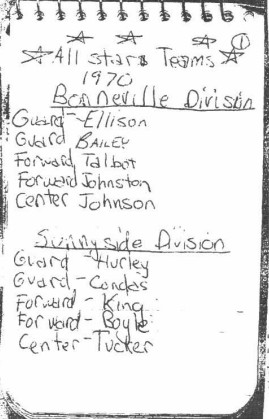 1
All stars Teams
1970
Bonneville Division
Guard - Ellison
Guard BAILEY
Forward Talbot
Forward Johnston
Center Johnson
Sunnyside Division
Guard Hurley
Guard - Condas
Forward - King
Forward - Boyle
Center - Tucker